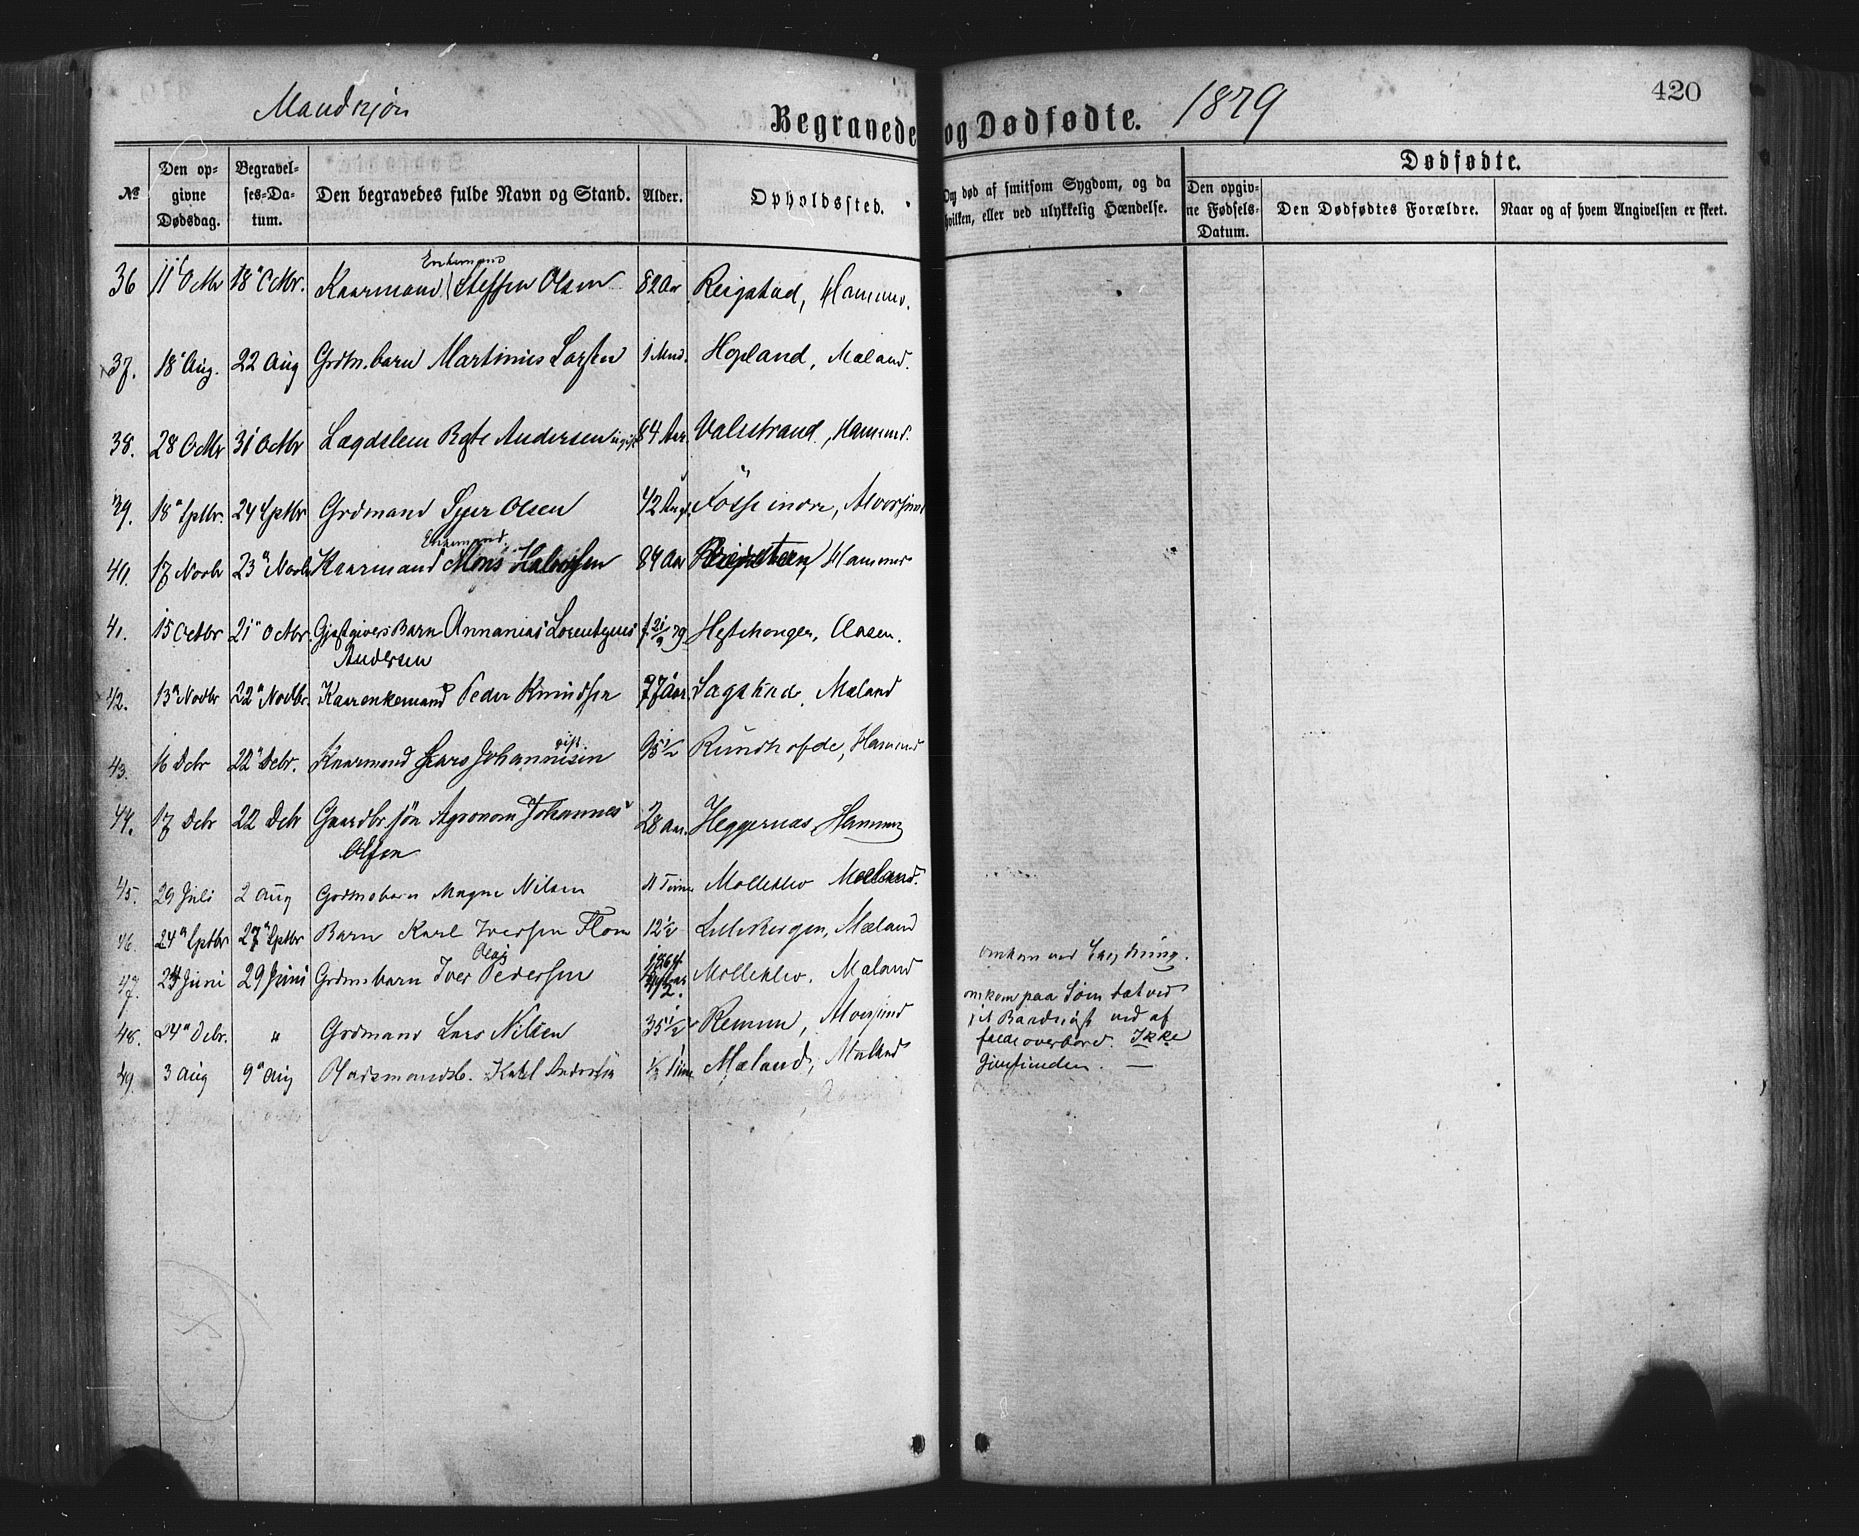 Mandkjøn
Begravede og Dødfødte.
1879
420
№
Den opgivne Dødsdag.
Begravelses-Datum.
Den begravedes fulde Navn og Stand.
Alder.
Opholdssted.
Om død af smitsom Sygdom, og da hvilken, eller ved ulykkelig Hændelse.
Dødfødte.
Den opgivne Fødsels-Datum.
Den Dødfødtes Forældre.
Naar og af hvem Angivelsen er skeet.
Enkemand
36 11' Octbr 18" Octbr. Kaarmand Steffen Olsen 82 Aar Reigstad, Hammer.
37. 18" Aug. 22 Aug Grdm.barn Martinus Larsen 1 Mnd. Hopland, Mæland.
38. 28 Octbr 31 Octbr Lægdslem Andersen ugift 84 Aar. Valestrand, Hammer.
39. 18" Septbr. 24 Septbr Grdmand Sjur Olsen 42 Fosse indre,
Enkemand
40. 17 Novbr 23" Novbr Kaarmand Mons 84 Aar Hammer
41. 15 Octbr 21" Octbr. Gjæstgivers Barn Annanias Lorentzius f. 21/9 79 Aasen.
Andersen
42. 13" Novbr 22" Novbr. Kaarenkemand Peder Knudsen 77 Aar. Sagstad, Mæland
gift
43. 16 Debr 22" Debr. Kaarmand Lars Johannesen 95 1/2 Rundhofde, Hammer
44. 17 Debr 22 Debr Gaardbr.søn Agronom Johannes 28 Aar. Heggernæs, Hammer
Olsen
45. 29 Juli 2 Aug Grdmsbarn Magne Nilsen 11 Timer Molleklev Mæland.
46. 24" Septbr 27" Septbr Barn Karl Iversen Flom 12 1/2 Lillebergen, Mæland
Olai 1864
47. 24 Juni 29 Juni Grdmsbarn Iver Pedersen Molleklev. Mæland
omkom ved
48. 24" Debr. " Grdmand Lars Nilsen 35 1/2 Remme,
omkom paa Søen tæt ved
sit ved at
falde overbord. Ikke
gjenfunden. —
49. 3 Aug 9" Aug Pladsmandsb. Karl Andersen 1/2 Time Mæland, Mæland